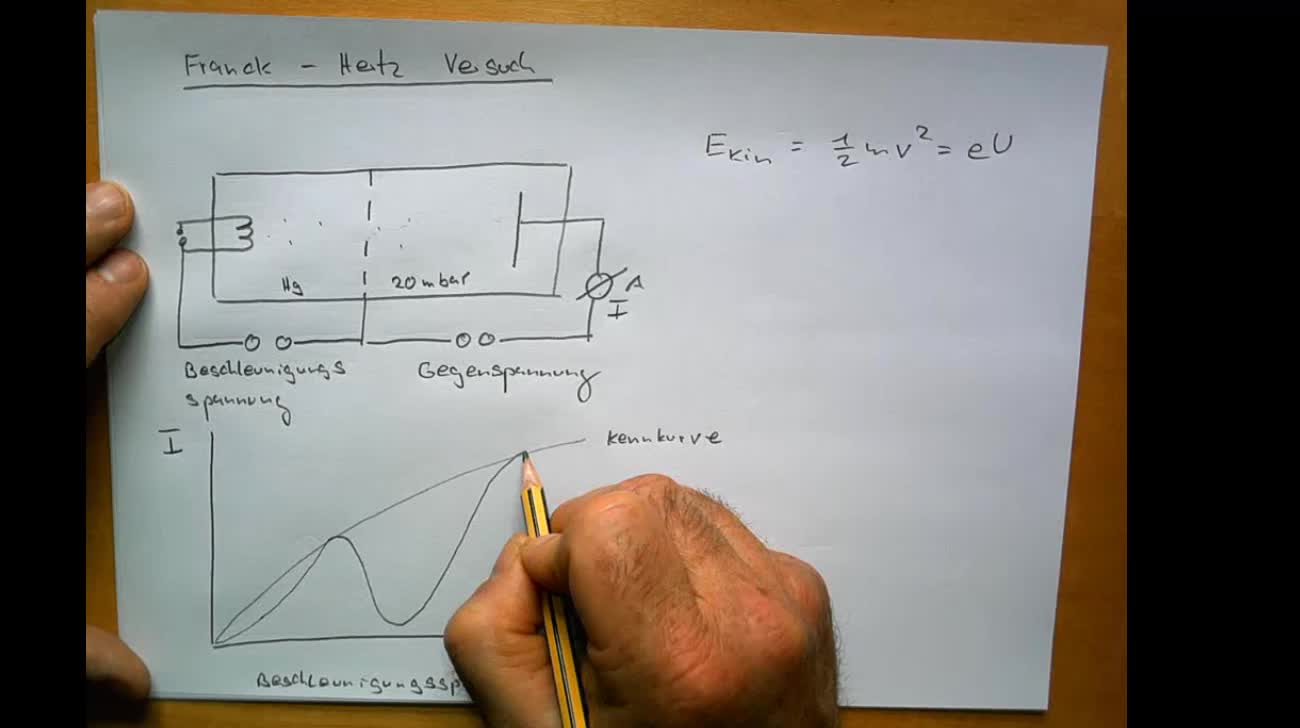 Franck - Hertz Versuch
Ekin = 1/2 mv² = eU
Hg 20 mbar
A
I
Beschleunigungs
spannung
Gegenspannung
I
Kennkurve
Beschleunigungssp